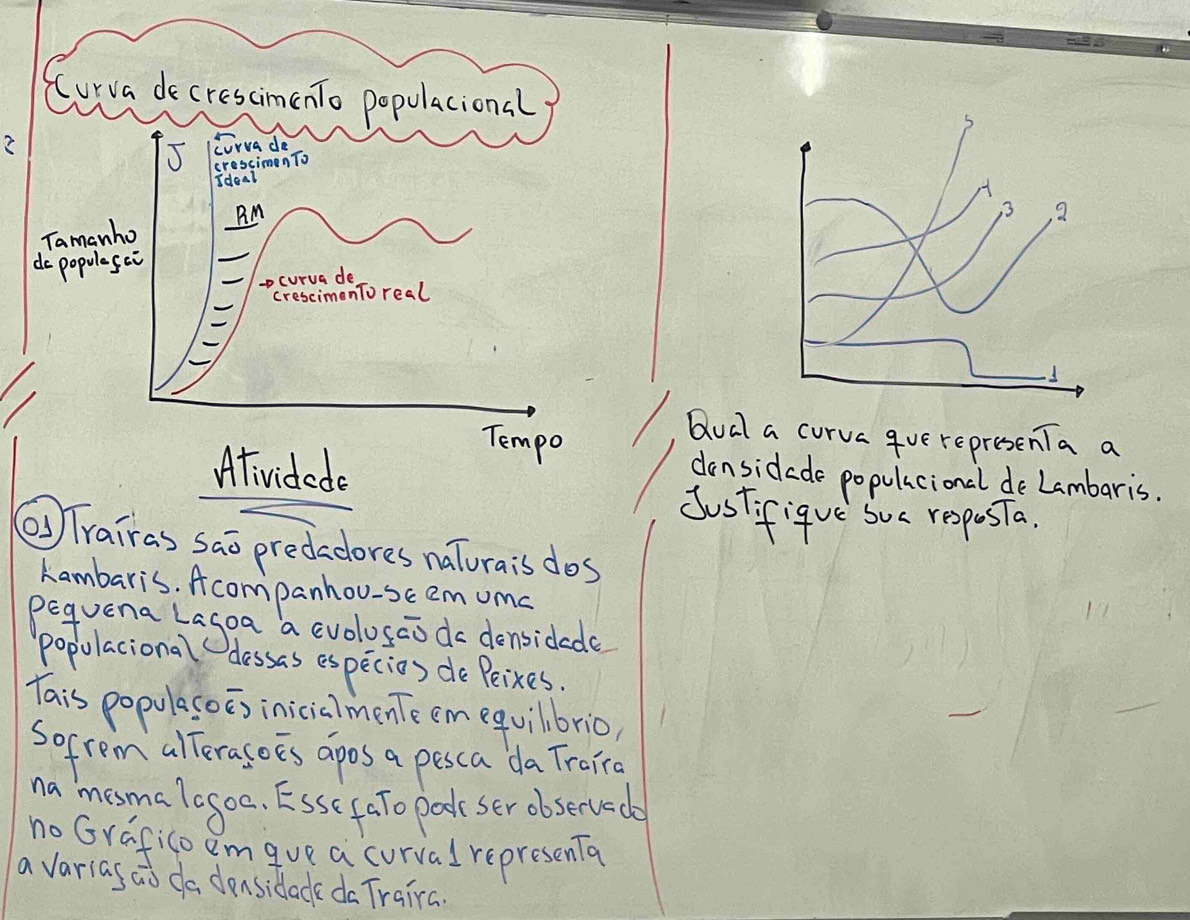 Curva de crescimento populacional
J
curva de
crescimento
Ideal
RM
Tamanho
da populaçaõ
curva de
crescimento real
Tempo
Atividade
01 Traíras saõ predadores naturais dos
Lambaris. Acompanhou-se em uma
pequena Lagoa a evoluçaõ da densidade
populacional dessas espécies de Peixes.
Tais populaçoẽs inicialmente em equilíbrio,
Sofrem alteraçoẽs ápos a pesca da Traíra
na mesma lagoa. Esse fato pode ser observado
no Gráfico em que a curva 1 representa
a variaçaõ da densidade da Traíra.
5
4
3
2
1
Qual a curva que representa a
densidade populacional de Lambaris.
Justifique sua resposta.